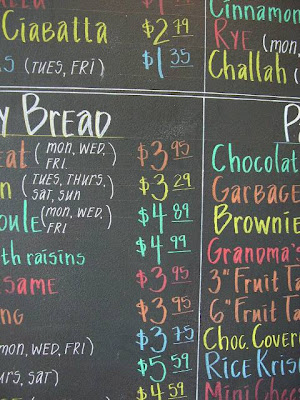 Ciabatta $2 79
(TUES, FRI) $1 35
Cinnamon
RYE (mon,
Challah (
Y BREAD
eat (mon, WED, FRI.) $3 95
n (TUES, THURS, SAT, SUN $3 29
oule (mon, WED, FRI $4 89
th raisins $4 99
same $3 95
ng $3 95
mon, WED, FRI) $3 75
hurs, SAT) $5 59
$4 59
P
Chocolat
Garbage
Brownie
GRANDMA'S
3" Fruit TA
6" Fruit TA
Choc. Cover
RICE KRIS
Mini Choc